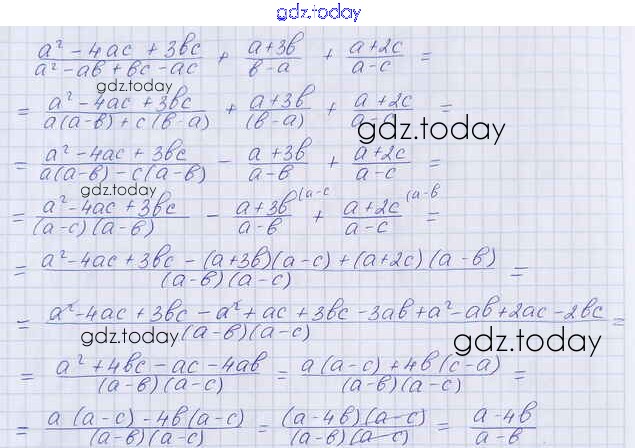 gdz.today
(a² - 4ac + 3bc)/(a² - ab + bc - ac) + (a+3b)/(b-a) + (a+2c)/(a-c) =
gdz.today
= (a² - 4ac + 3bc)/(a(a-b) + c(b-a)) + (a+3b)/(b-a) + (a+2c)/(a-c) =
gdz.today
= (a² - 4ac + 3bc)/(a(a-b) - c(a-b)) - (a+3b)/(a-b) + (a+2c)/(a-c) =
gdz.today
= (a² - 4ac + 3bc)/((a-c)(a-b)) - (a+3b)/(a-b) (a-c + (a+2c)/(a-c) (a-b =
= (a² - 4ac + 3bc - (a+3b)(a-c) + (a+2c)(a-b))/((a-b)(a-c)) =
= (a² - 4ac + 3bc - a² + ac + 3bc - 3ab + a² - ab + 2ac - 2bc)/((a-b)(a-c)) =
gdz.today gdz.today
= (a² + 4bc - ac - 4ab)/((a-b)(a-c)) = (a(a-c) + 4b(c-a))/((a-b)(a-c)) =
= (a(a-c) - 4b(a-c))/((a-b)(a-c)) = ((a-4b)(a-c))/((a-b)(a-c)) = (a-4b)/(a-b)